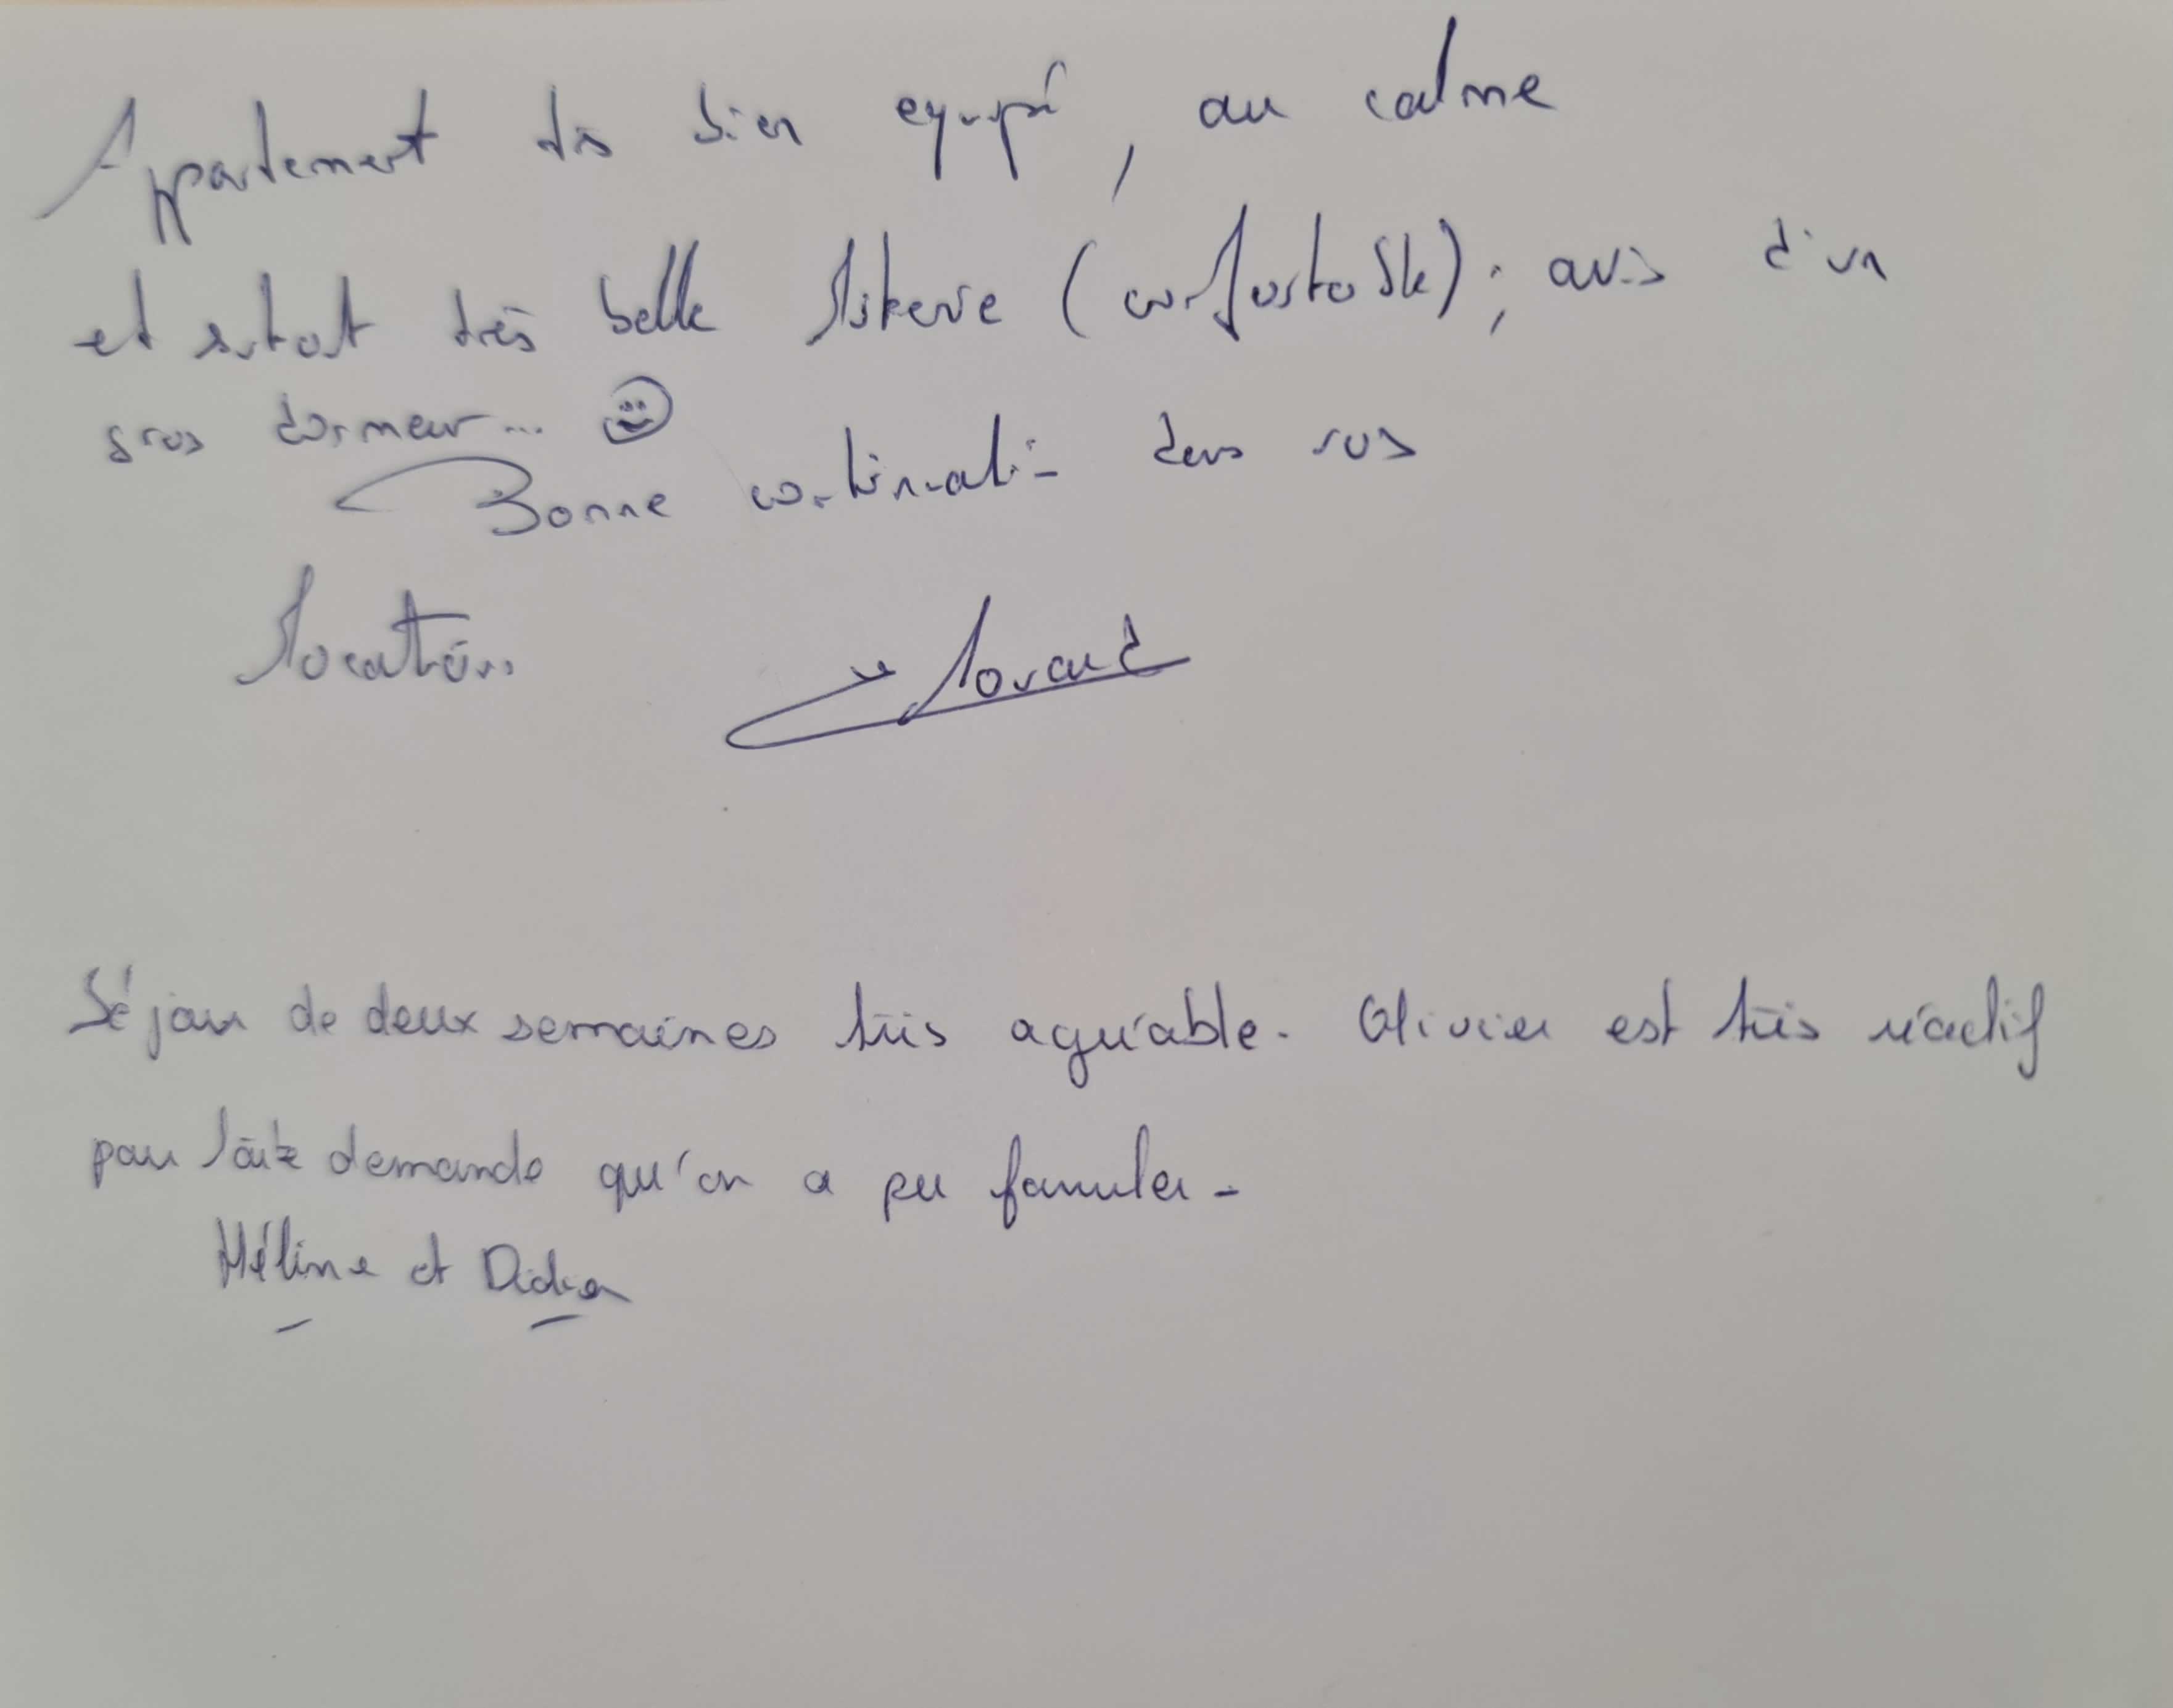 Appartement très bien equipé, au calme
et surtout très belle literie (confortable); avis d'un
gros dormeur... ☺
Bonne continuation dans vos
locations
Séjour de deux semaines très agréable. Olivier est très réactif
pour toute demande qu'on a pu formuler.
Hélène et Didier